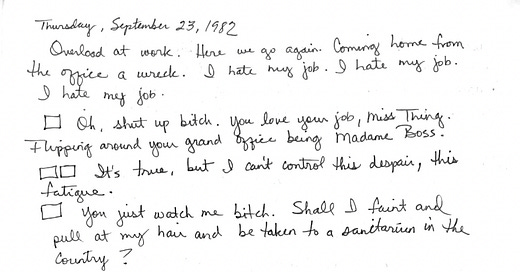 Thursday, September 23, 1982
Overload at work. Here we go again. Coming home from
the office a wreck. I hate my job. I hate my job.
I hate my job.
□ Oh, shut up bitch. You love your job, Miss Thing.
Flipping around your grand office being Madame Boss.
□□ It's true, but I can't control this despair, this
fatigue.
□ You just watch me bitch. Shall I faint and
pull at my hair and be taken to a sanitarium in the
country?